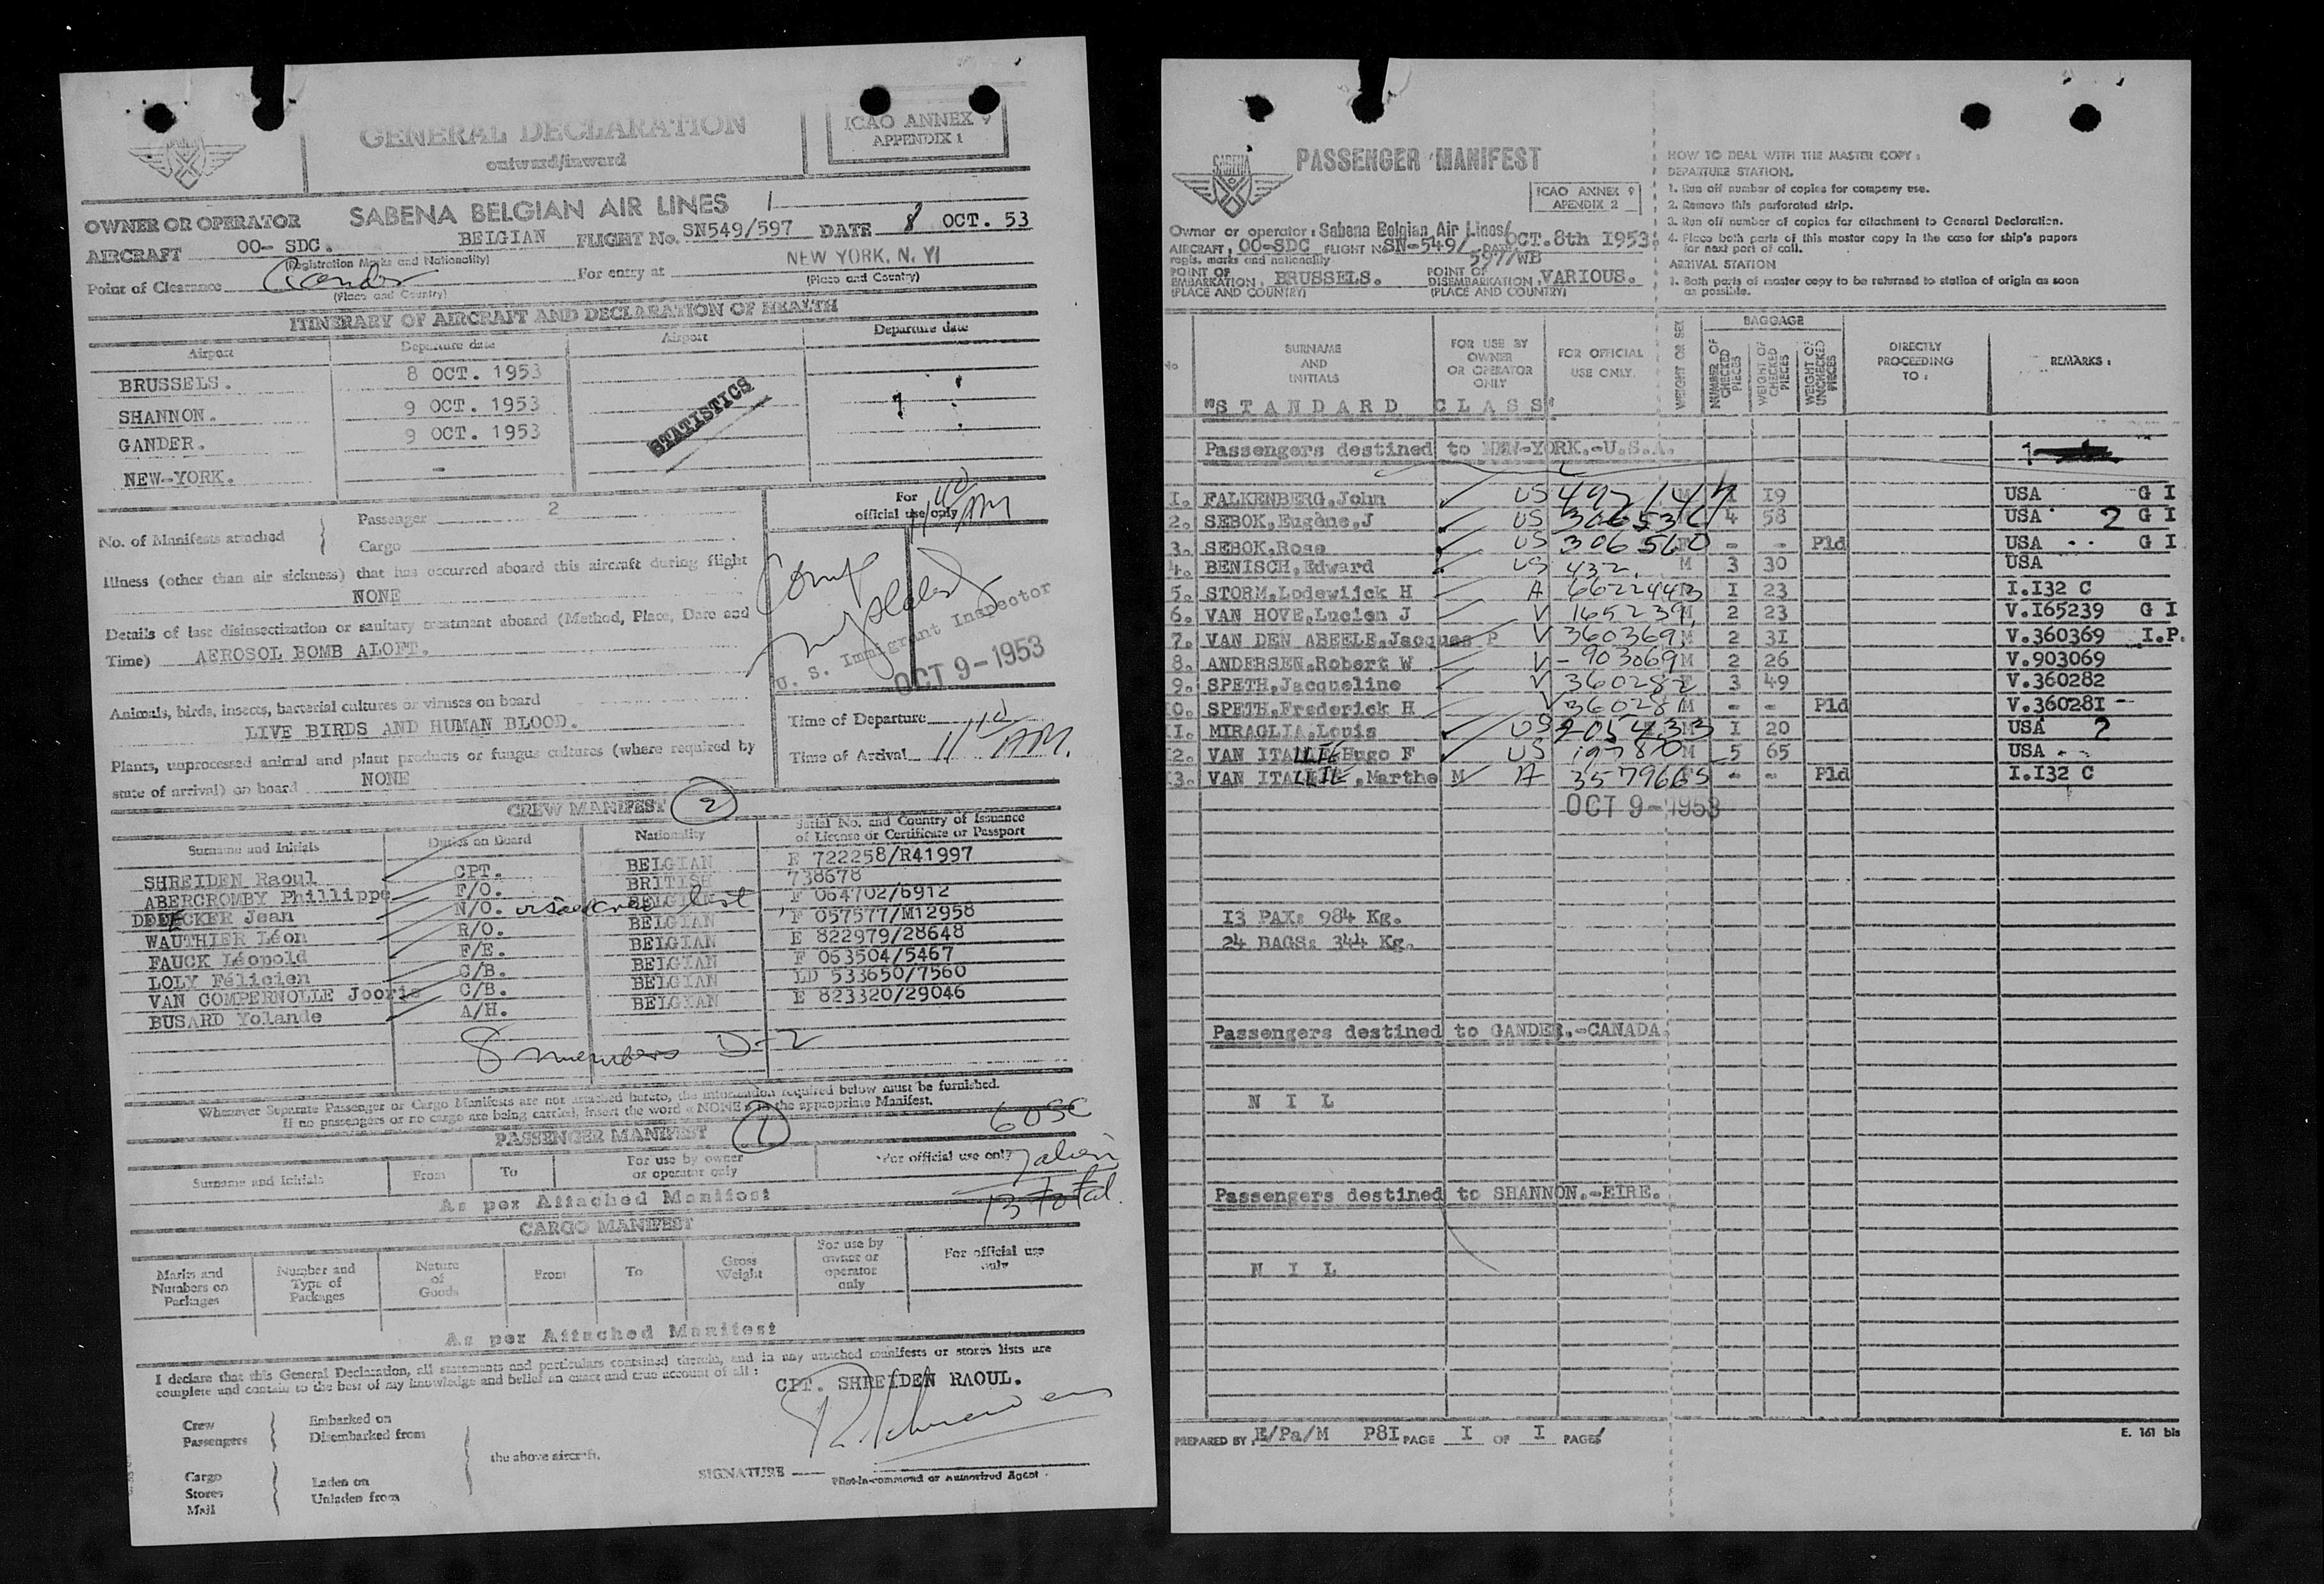 GENERAL DECLARATION
outward/inward
ICAO ANNEX 9
APPENDIX 1
OWNER OR OPERATOR SABENA BELGIAN AIR LINES
AIRCRAFT OO- SDC. BELGIAN FLIGHT No. SN549/597 DATE 8 OCT. 53
(Registration Marks and Nationality)
Point of Clearance Gander For entry at NEW YORK, N. Y
(Place and Country) (Place and Country)
ITINERARY OF AIRCRAFT AND DECLARATION OF HEALTH
Airport Departure date Airport Departure date
BRUSSELS. 8 OCT. 1953
SHANNON. 9 OCT. 1953
GANDER. 9 OCT. 1953
NEW-YORK. -
STATISTICS
No. of Manifests attached { Passenger 2
Cargo
For official use only
11 10 AM
Illness (other than air sickness) that has occurred aboard this aircraft during flight
NONE
Details of last disinsectization or sanitary treatment aboard (Method, Place, Date and
Time) AEROSOL BOMB ALOFT.
U. S. Immigrant Inspector
OCT 9-1953
Animals, birds, insects, bacterial cultures or viruses on board
LIVE BIRDS AND HUMAN BLOOD.
Plants, unprocessed animal and plant products or fungus cultures (where required by
state of arrival) on board NONE
Time of Departure
Time of Arrival 11 10 AM.
CREW MANIFEST 2
Surname and Initials Duties on Board Nationality Serial No. and Country of Issuance
of License or Certificate or Passport
SHREIDEN Raoul CPT. BELGIAN E 722258/R41997
ABERCROMBY Phillippe F/O. BRITISH 738678
DEDECKER Jean N/O. BELGIAN F 064702/6912
WAUTHIER Léon R/O. BELGIAN F 057577/M12958
FAUCK Léopold F/E. BELGIAN E 822979/28648
LOLY Félicien C/B. BELGIAN F 063504/5467
VAN COMPERNOLLE Jooris C/B. BELGIAN LD 533650/7560
BUSARD Yolande A/H. BELGIAN E 823320/29046
8 members D-2
Whenever Separate Passenger or Cargo Manifests are not attached hereto, the information required below must be furnished.
If no passengers or no cargo are being carried, insert the word « NONE » in the appropriate Manifest.
PASSENGER MANIFEST 1
6 USC
7 alien
13 total.
Surname and Initials From To For use by owner or operator only For official use only
As per Attached Manifest
CARGO MANIFEST
Marks and Numbers on Packages Number and Type of Packages Nature of Goods From To Gross Weight For use by owner or operator only For official use only
As per Attached Manifest
I declare that this General Declaration, all statements and particulars contained therein, and in any attached manifests or stores lists are
complete and contain to the best of my knowledge and belief an exact and true account of all :
CPT. SHREIDEN RAOUL.
Crew
Passengers
Embarked on
Disembarked from
the above aircraft.
Cargo
Stores
Mail
Laden on
Unladen from
SIGNATURE
Pilot-in-command or Authorized Agent
SABENA
PASSENGER MANIFEST
ICAO ANNEX 9
APENDIX 2
Owner or operator : Sabena Belgian Air Lines
AIRCRAFT, OO-SDC FLIGHT No SN-549/ DATE OCT.8th 1953
regis. marks and nationality 597/WB
POINT OF EMBARKATION, BRUSSELS. POINT OF DISEMBARKATION, VARIOUS.
(PLACE AND COUNTRY) (PLACE AND COUNTRY)
HOW TO DEAL WITH THE MASTER COPY :
DEPARTURE STATION.
1. Run off number of copies for company use.
2. Remove this perforated strip.
3. Run off number of copies for attachment to General Declaration.
4. Place both parts of this master copy in the case for ship's papers
for next port of call.
ARRIVAL STATION
1. Both parts of master copy to be returned to station of origin as soon
as possible.
No SURNAME AND INITIALS FOR USE BY OWNER OR OPERATOR ONLY FOR OFFICIAL USE ONLY. WEIGHT OR SEX BAGGAGE NUMBER OF CHECKED PIECES WEIGHT OF CHECKED PIECES WEIGHT OF UNCHECKED PIECES DIRECTLY PROCEEDING TO : REMARKS :
"STANDARD CLASS"
Passengers destined to NEW-YORK.-U.S.A.
1. FALKENBERG,John US M 1 19 USA G I
2. SEBOK,Eugène,J US 4 58 USA 2 G I
3. SEBOK,Rose US 306560 - - Pld USA G I
4. BENISCH,Edward US 432 M 3 30 USA
5. STORM,Lodewijck H A I 23 I.I32 C
6. VAN HOVE,Lucien J V 165239 M 2 23 V.I65239 G I
7. VAN DEN ABEELE,Jacques P V 360369 M 2 3I V.360369 I.P.
8. ANDERSEN,Robert W V-903069 M 2 26 V.903069
9. SPETH,Jacqueline V 360282 3 49 V.360282
10. SPETH,Frederick H V 36028 M - - Pld V.36028I
11. MIRAGLIA,Louis US M I 20 USA 2
12. VAN ITALLIE Hugo F US 197870 M 5 65 USA
13. VAN ITALLIE,Marthe M A - - Pld I.I32 C
OCT 9-1953
I3 PAX: 984 Kg.
24 BAGS: 344 Kg.
Passengers destined to GANDER.-CANADA.
N I L
Passengers destined to SHANNON.-EIRE.
N I L
PREPARED BY E/Pa/M P8I PAGE I OF I PAGES
E. 161 bis